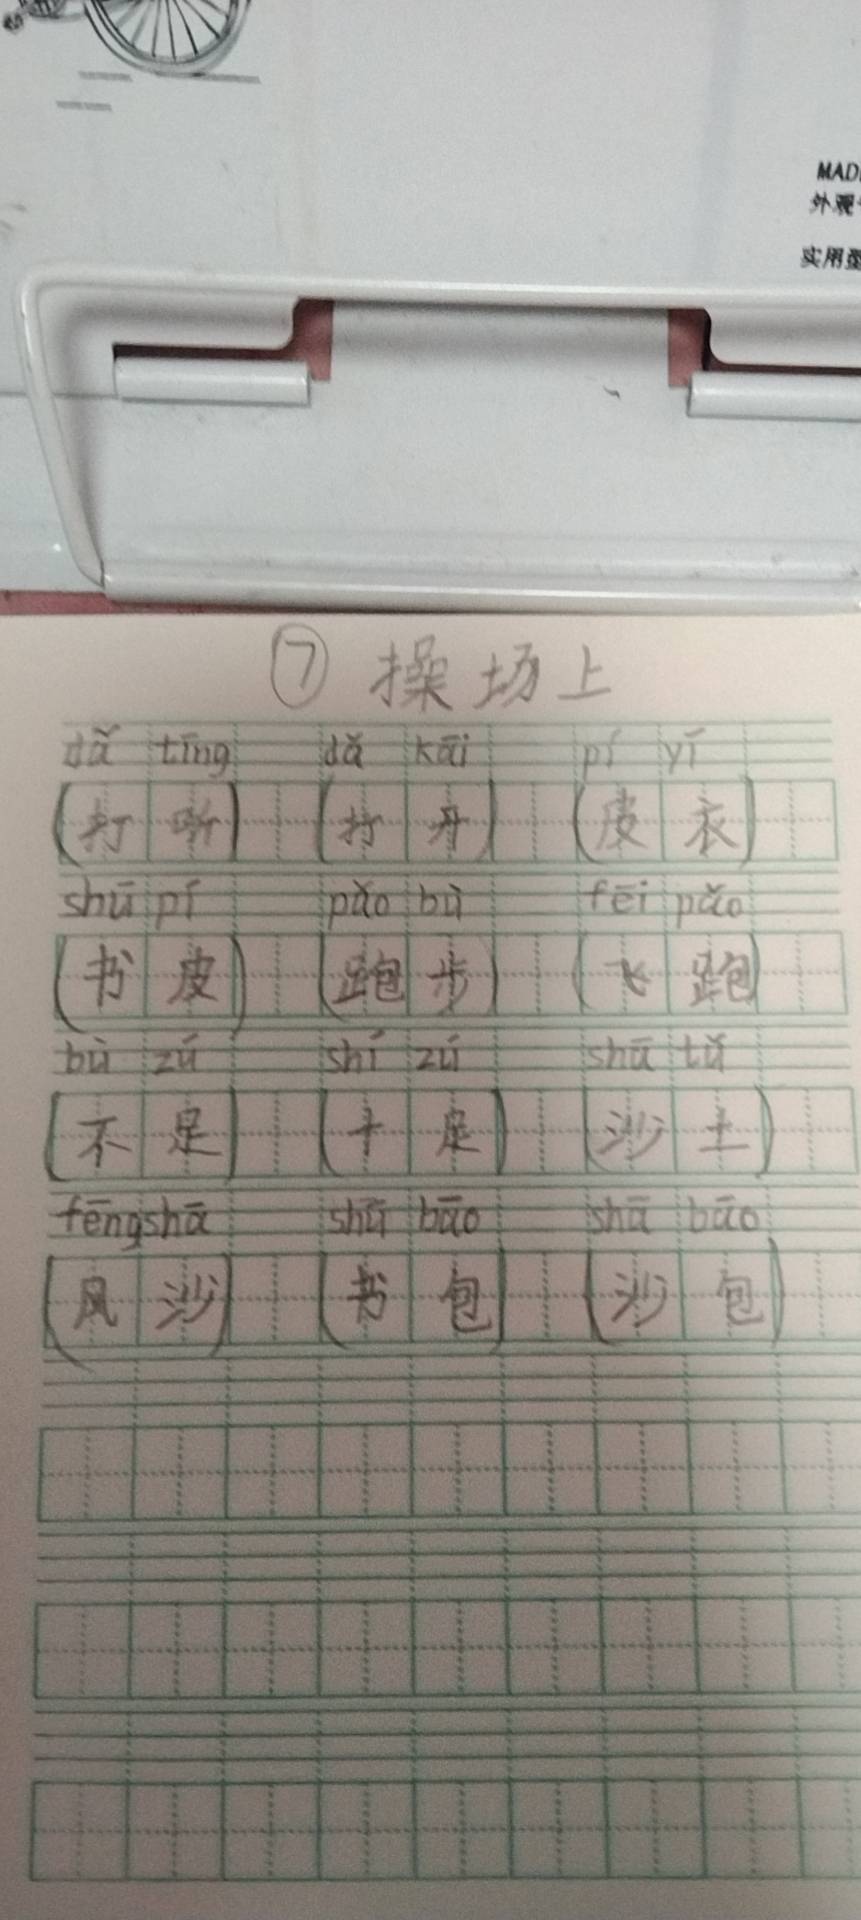 MAD
外观
实用型
⑦ 操场上
dǎ tīng dǎ kāi pí yī
(打 听) (打 开) (皮 衣)
shū pí pǎo bù fēi pǎo
(书 皮) (跑 步) (飞 跑)
bù zú shí zú shā tǔ
(不 足) (十 足) (沙 土)
fēng shā shū bāo shā bāo
(风 沙) (书 包) (沙 包)